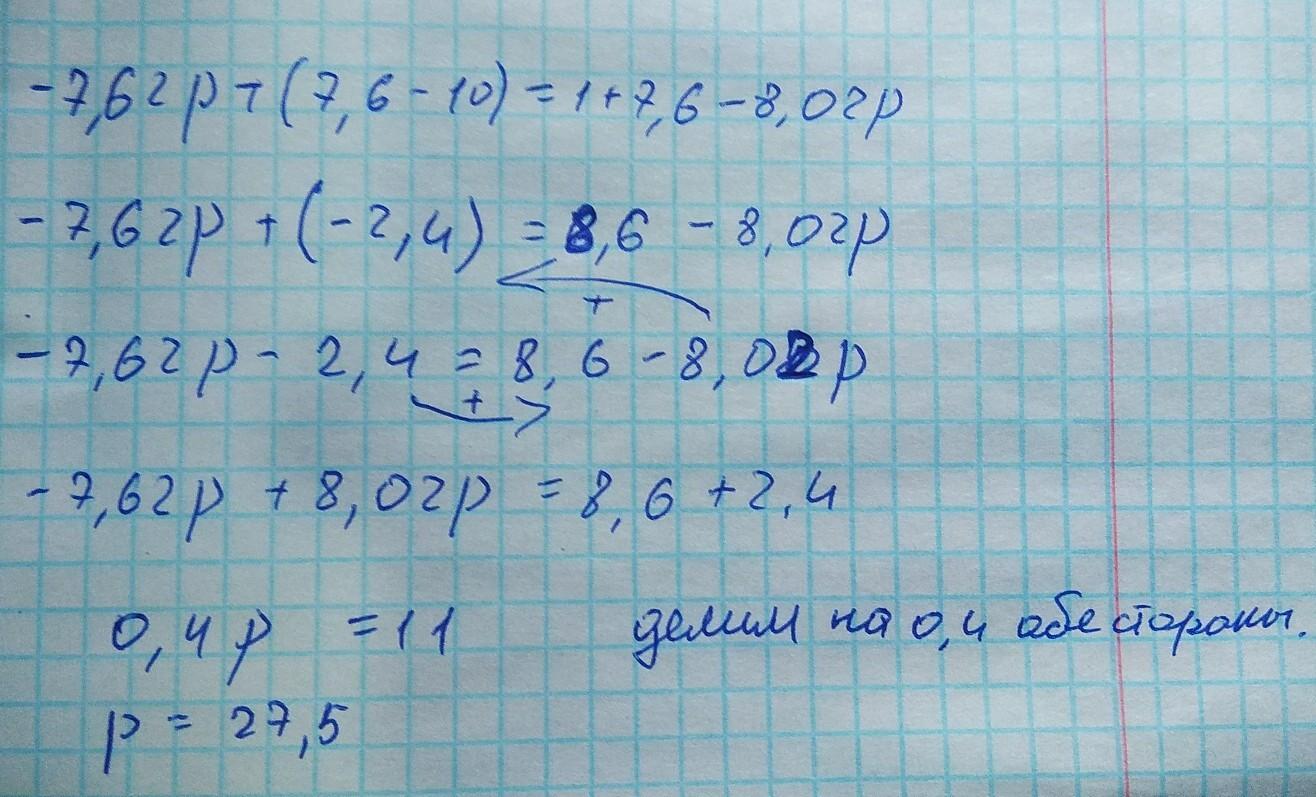 -7,62p+(7,6-10)=1+7,6-8,02p
-7,62p+(-2,4)=8,6-8,02p
+
-7,62p-2,4=8,6-8,02p
+
-7,62p+8,02p=8,6+2,4
0,4p=11 делим на 0,4 обе стороны.
p=27,5